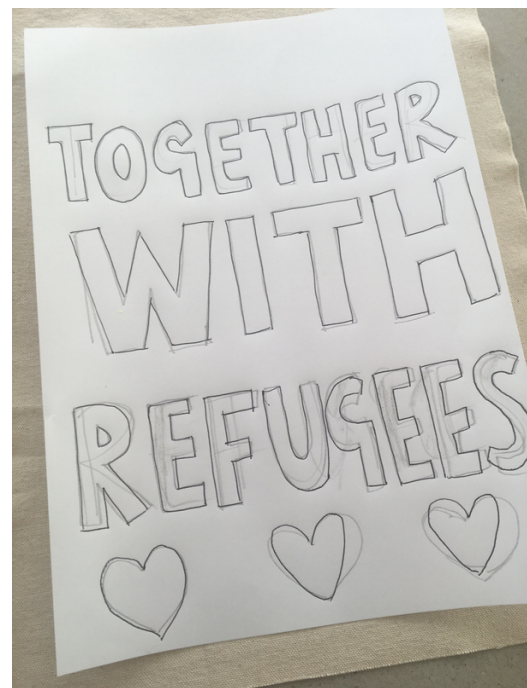 TOGETHER
WITH
REFUGEES